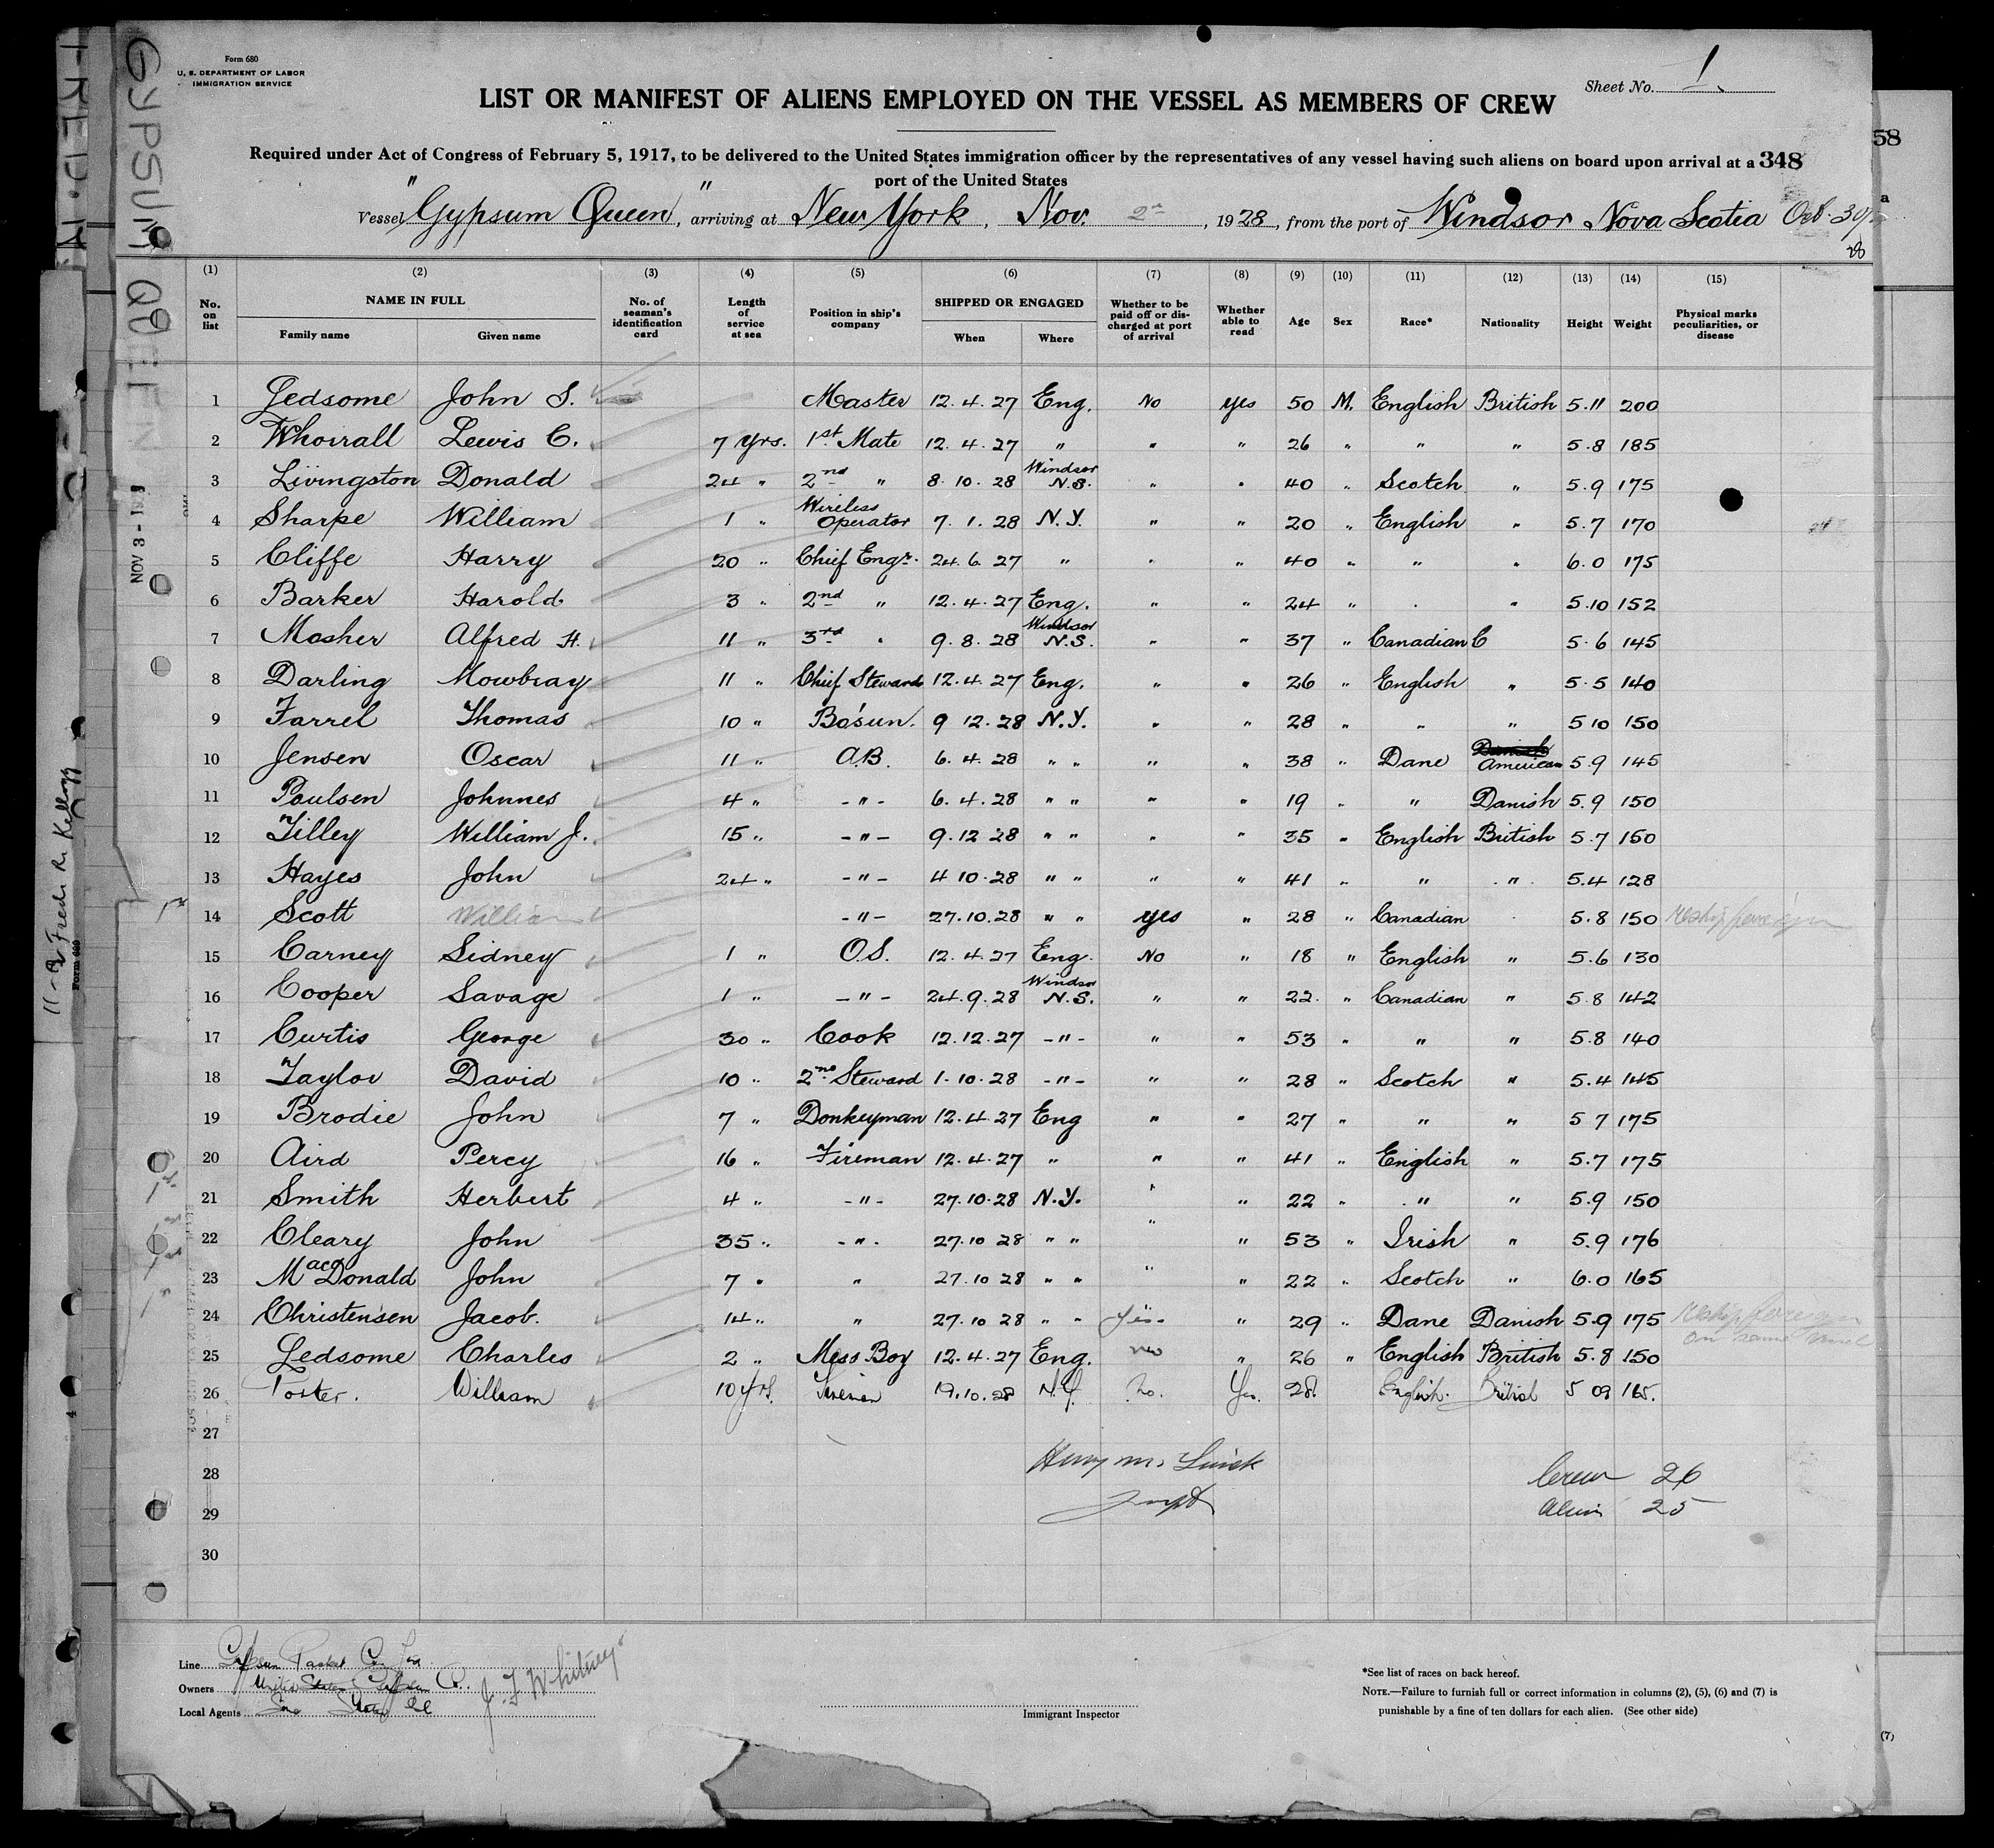 Form 680
U. S. DEPARTMENT OF LABOR
IMMIGRATION SERVICE
Sheet No. 1
LIST OR MANIFEST OF ALIENS EMPLOYED ON THE VESSEL AS MEMBERS OF CREW
Required under Act of Congress of February 5, 1917, to be delivered to the United States immigration officer by the representatives of any vessel having such aliens on board upon arrival at a 348
port of the United States
Vessel "Gypsum Queen", arriving at New York, Nov. 2nd, 1928, from the port of Windsor Nova Scotia Oct. 30/
28
(1) (2) (3) (4) (5) (6) (7) (8) (9) (10) (11) (12) (13) (14) (15)
No. on list NAME IN FULL Family name Given name No. of seaman's identification card Length of service at sea Position in ship's company SHIPPED OR ENGAGED When Where Whether to be paid off or discharged at port of arrival Whether able to read Age Sex Race* Nationality Height Weight Physical marks peculiarities, or disease
1 Ledsome John S. Master 12.4.27 Eng. No yes 50 M. English British 5.11 200
2 Whoirall Lewis C. 7 yrs. 1st Mate 12.4.27 " " " 26 " " " 5.8 185
3 Livingston Donald 24 " 2nd " 8.10.28 Windsor N.S. " " 40 " Scotch " 5.9 175
4 Sharpe William 1 " Wireless Operator 7.1.28 N.Y. " " 20 " English " 5.7 170
5 Cliffe Harry 20 " Chief Engr. 24.6.27 " " " 40 " " " 6.0 175
6 Barker Harold 3 " 2nd " 12.4.27 Eng. " " 24 " " " 5.10 152
7 Mosher Alfred H. 11 " 3rd " 9.8.28 Windsor N.S. " " 37 " Canadian C 5.6 145
8 Darling Mowbray 11 " Chief Steward 12.4.27 Eng. " " 26 " English " 5.5 140
9 Farrel Thomas 10 " Bo'sun. 9 12.28 N.Y. " " 28 " " " 5 10 150
10 Jensen Oscar 11 " A.B. 6.4.28 " " " " 38 " Dane Danish American 5.9 145
11 Poulsen Johnnes 4 " - " - 6.4.28 " " " " 19 " " Danish 5.9 150
12 Tilley William J. 15 " - " - 9.12 28 " " " " 35 " English British 5.7 150
13 Hayes John 24 " - " - 4 10.28 " " " " 41 " " " 5.4 128
14 Scott William - " - 27.10.28 " " yes " 28 " Canadian 5.8 150 reship foreign
15 Carney Sidney 1 " O.S. 12.4.27 Eng. No " 18 " English " 5.6 130
16 Cooper Savage 1 " - " - 24.9.28 Windsor N.S. " " 22. " Canadian " 5.8 142
17 Curtis George 30 " Cook 12.12.27 - " - " " 53 " " " 5.8 140
18 Taylor David 10 " 2nd Steward 1.10.28 - " - " " 28 " Scotch " 5.4 145
19 Brodie John 7 " Donkeyman 12.4.27 Eng " " 27 " " " 5 7 175
20 Aird Percy 16 " Fireman 12.4.27 " " " 41 " English " 5.7 175
21 Smith Herbert 4 " - " - 27.10.28 N.Y. " " 22 " " " 5.9 150
22 Cleary John 35 " - " - 27.10 28 " " " " 53 " Irish " 5.9 176
23 MacDonald John 7 " " 27.10 28 " " " " 22 " Scotch " 6.0 165
24 Christensen Jacob. 14 " " 27.10 28 " " Yes " 29 " Dane Danish 5.9 175 reship foreign
on same vessel
25 Ledsome Charles 2 " Mess Boy 12.4.27 Eng. no " 26 " English British 5.8 150
26 Porter. William 10 yrs. Fireman 19.10.28 N.Y. No. Yes. 28. English. British 5 09 165.
27
28
29
30
Henry M.
Inspt
Crew 26
Alien 25
Line Gypsum Packet Co. Ltd
Owners United States Gypsum Co.
Local Agents
J. F. Whitney
Immigrant Inspector
*See list of races on back hereof.
NOTE.—Failure to furnish full or correct information in columns (2), (5), (6) and (7) is
punishable by a fine of ten dollars for each alien. (See other side)
GYPSUM QUEEN
Fredk R. Kellogg
Form 680
58
a
(7)